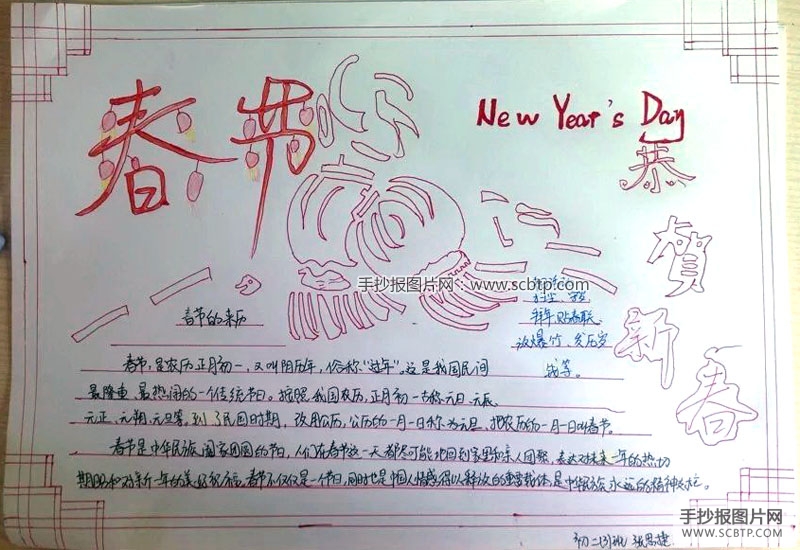 春节
New Year's Day
恭
贺
新
春
手抄报图片网 www.scbtp.com
春节的来历
扫尘、
拜年贴春联
放爆竹、发压岁
钱等。
春节,是农历正月初一,又叫阴历年,俗称“过年”。这是我国民间
最隆重、最热闹的一个传统节日。按照我国农历,正月初一古称元日、元辰、
元正、元朔、元旦等,到了民国时期,改用公历,公历的一月一日称为元旦,把农历的一月一日叫春节。
春节是中华民族阖家团圆的节日,人们在春节这一天都尽可能地回到家里和亲人团聚,表达对未来一年的热切
期盼和对新一年的美好祝福。春节不仅仅是一个节日,同时也是中国人情感得以释放的重要载体,是中华民族永远的精神支柱。
初二(3)班 张思捷
手抄报图片网
WWW.SCBTP.COM